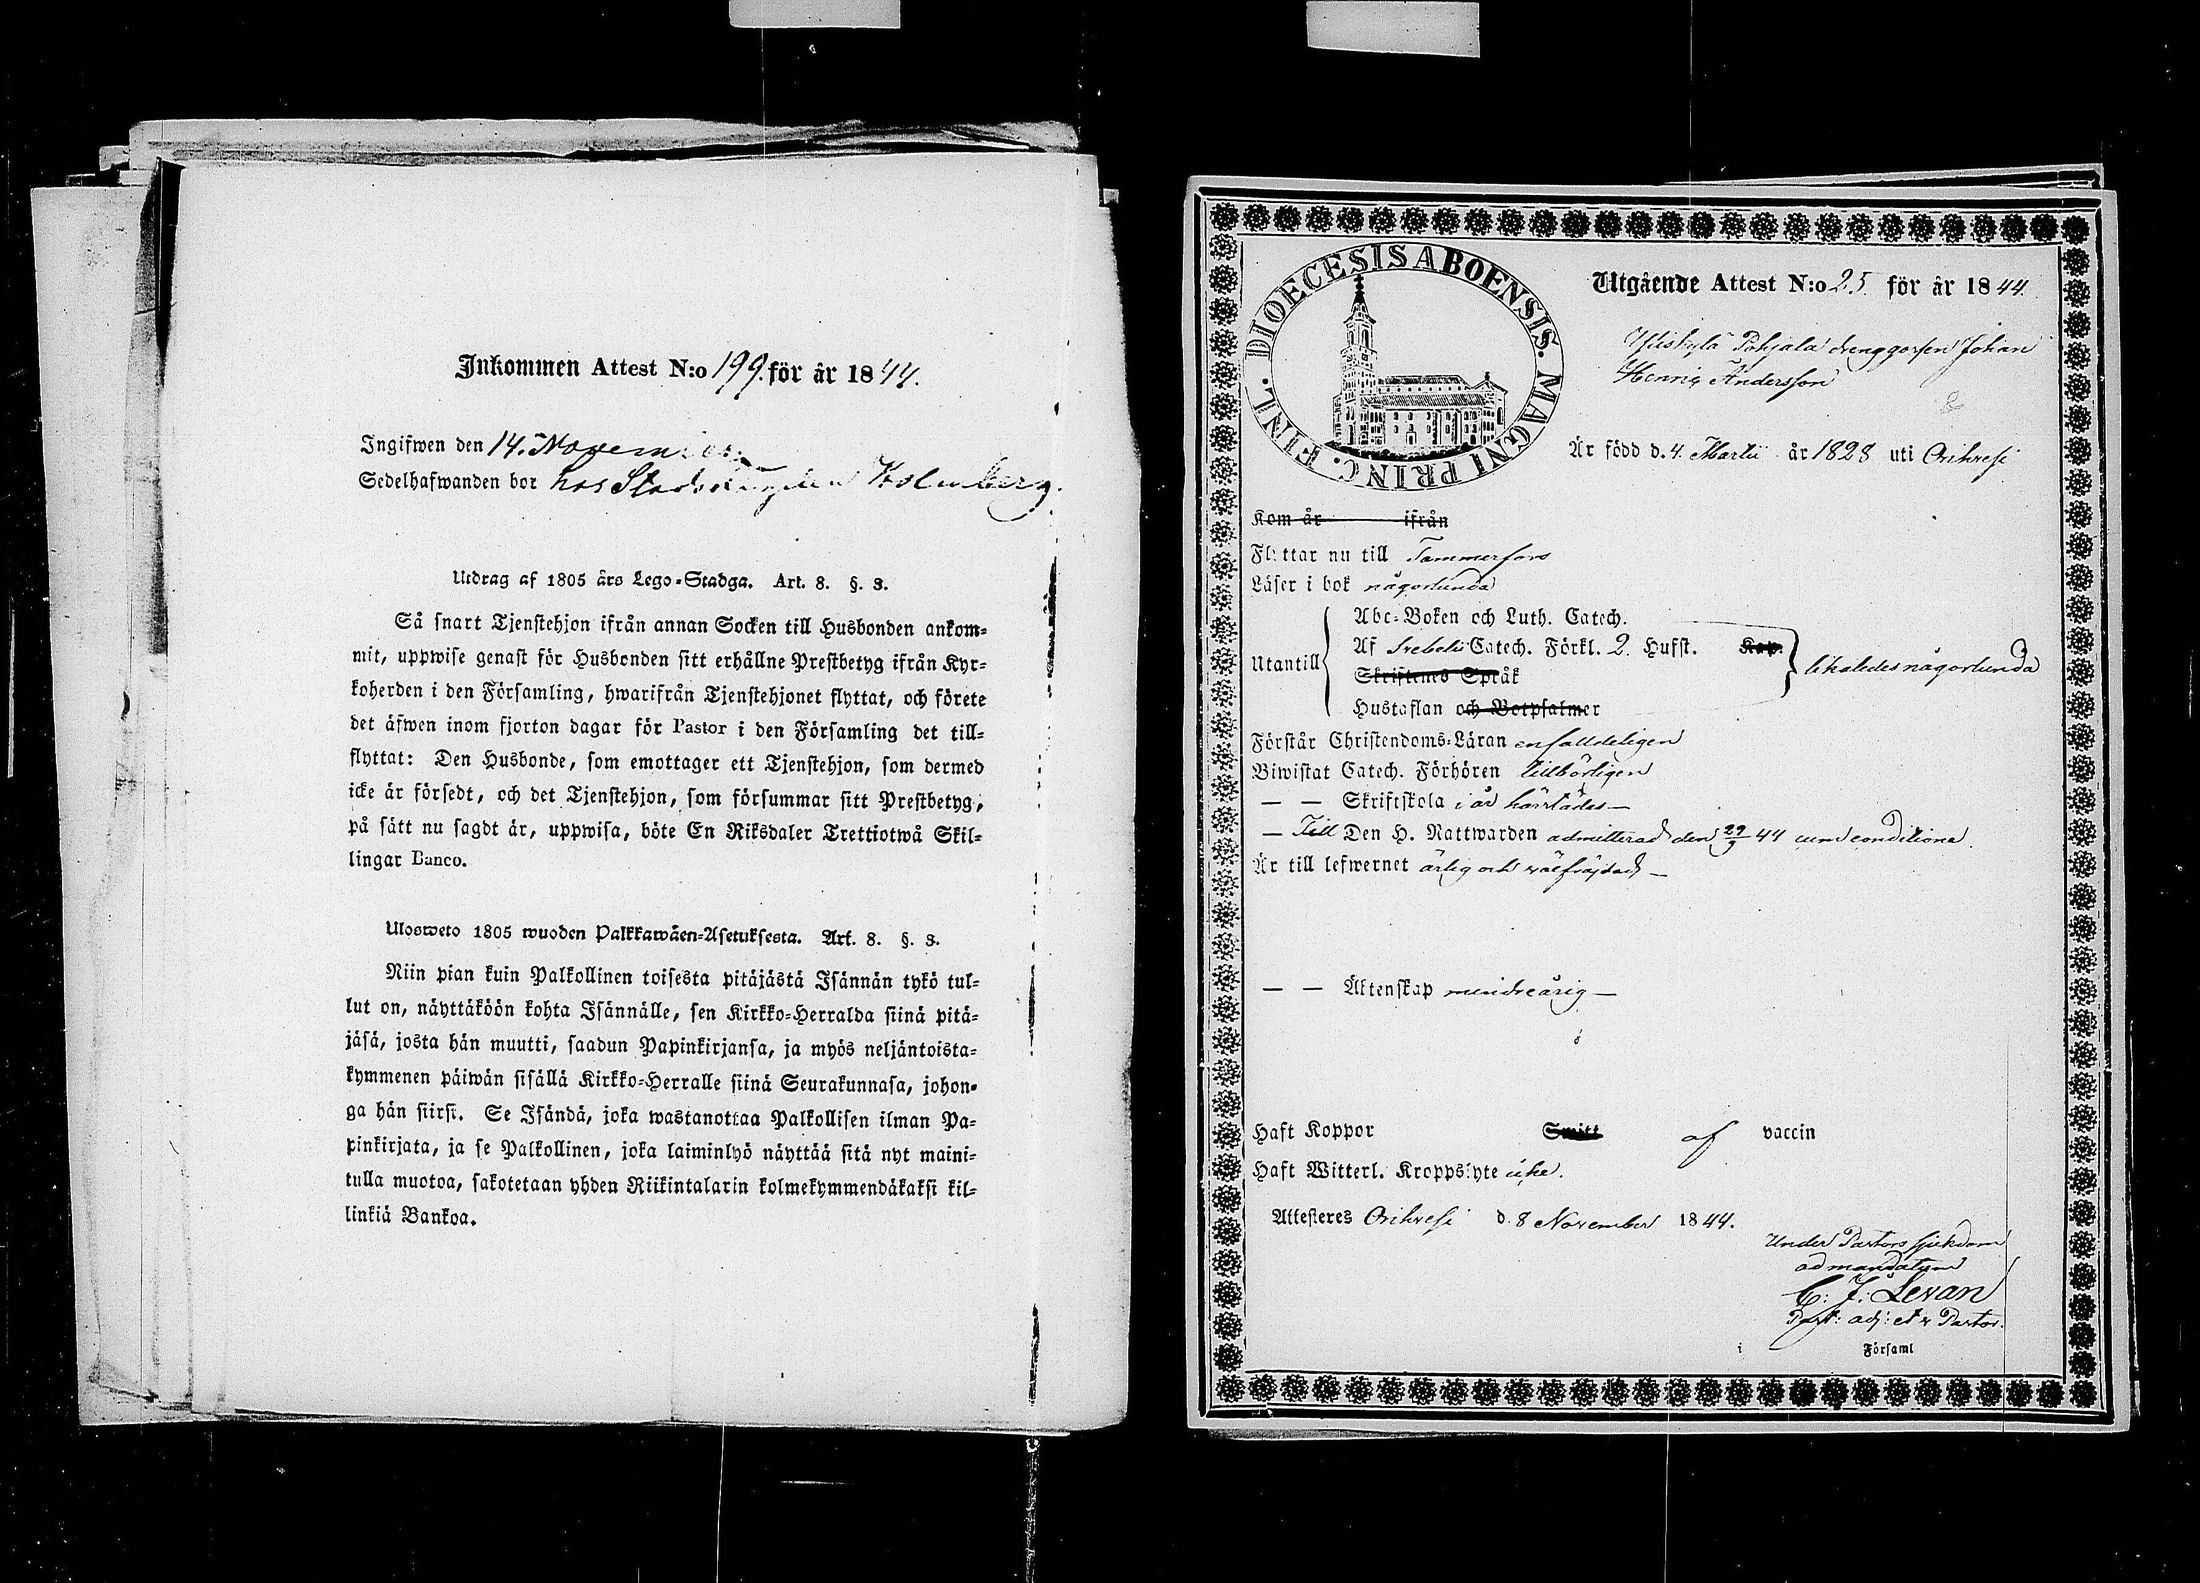 Inkommen Attest N:o 199. för år 1844.
Ingifwen den 14. November
Sedelhafwanden bor hos Holmberg.
Utdrag af 1805 års Lego-Stadga. Art. 8. §. 3.
Så snart Tjenstehjon ifrån annan Socken till Husbonden ankom-
mit, uppwise genast för Husbonden sitt erhållne Prestbetyg ifrån Kyr-
koherden i den Församling, hwarifrån Tjenstehjonet flyttat, och förete
det äfwen inom fjorton dagar för Pastor i den Församling det till-
flyttat: Den Husbonde, som emottager ett Tjenstehjon, som dermed
icke är försedt, och det Tjenstehjon, som försummar sitt Prestbetyg,
på sätt nu sagdt är, uppwisa, böte En Riksdaler Trettiotwå Skil-
lingar Banco.
Ulosweto 1805 wuoden Palkkawäen-Asetuksesta. Art. 8. §. 3.
Niin pian kuin Palkollinen toisesta pitäjästä Isännän tykö tul-
lut on, näyttäköön kohta Isännälle, sen Kirkko-Herralda siinä pitä-
jäsä, josta hän muutti, saadun Papinkirjansa, ja myös neljäntoista-
kymmenen päiwän sisällä Kirkko-Herralle siinä Seurakunnasa, johon-
ga hän siirsi. Se Isändä, joka wastanottaa Palkollisen ilman Pa-
pinkirjata, ja se Palkollinen, joka laiminlyö näyttää sitä nyt maini-
tulla muotoa, sakotetaan yhden Riikintalarin kolmekymmendäkaksi kil-
linkiä Bankoa.
DIOECESIS ABOENSIS. MAGNI PRINC. FINL.
Utgående Attest N:o 25 för år 1844.
Yliskylä Pohjala drenggossen Johan
Henric Andersson
Är född d. 4. Martii år 1828 uti Orihvesi
Kom år ifrån
Flyttar nu till Tammerfors
Läser i bok någorlunda
Utantill
Abc-Boken och Luth. Catech.
Af Svebelii Catech. Förkl. 2. Hufst. Kap.
Skriftenes Språk
Hustaflan och Botpsalmer
likaledes någorlunda
Förstår Christendoms-Läran enfalldeligen
Biwistat Catech. Förhören tillbörligen
— — Skriftskola i år härstädes —
— Till Den H. Nattwarden admitterad den 29/9 44 cum conditione.
Är till lefwernet ärlig och välfräjdad —
— — Äktenskap mindreårig —
Haft Koppor Smitt af vaccin
Haft Witterl. Kroppslyte icke.
Attesteres Orihvesi d. 8 November 1844.
Under Pastors sjukdom
ad mandatum
C: J: Levan
Past: adj: et v. Pastor.
i Församl